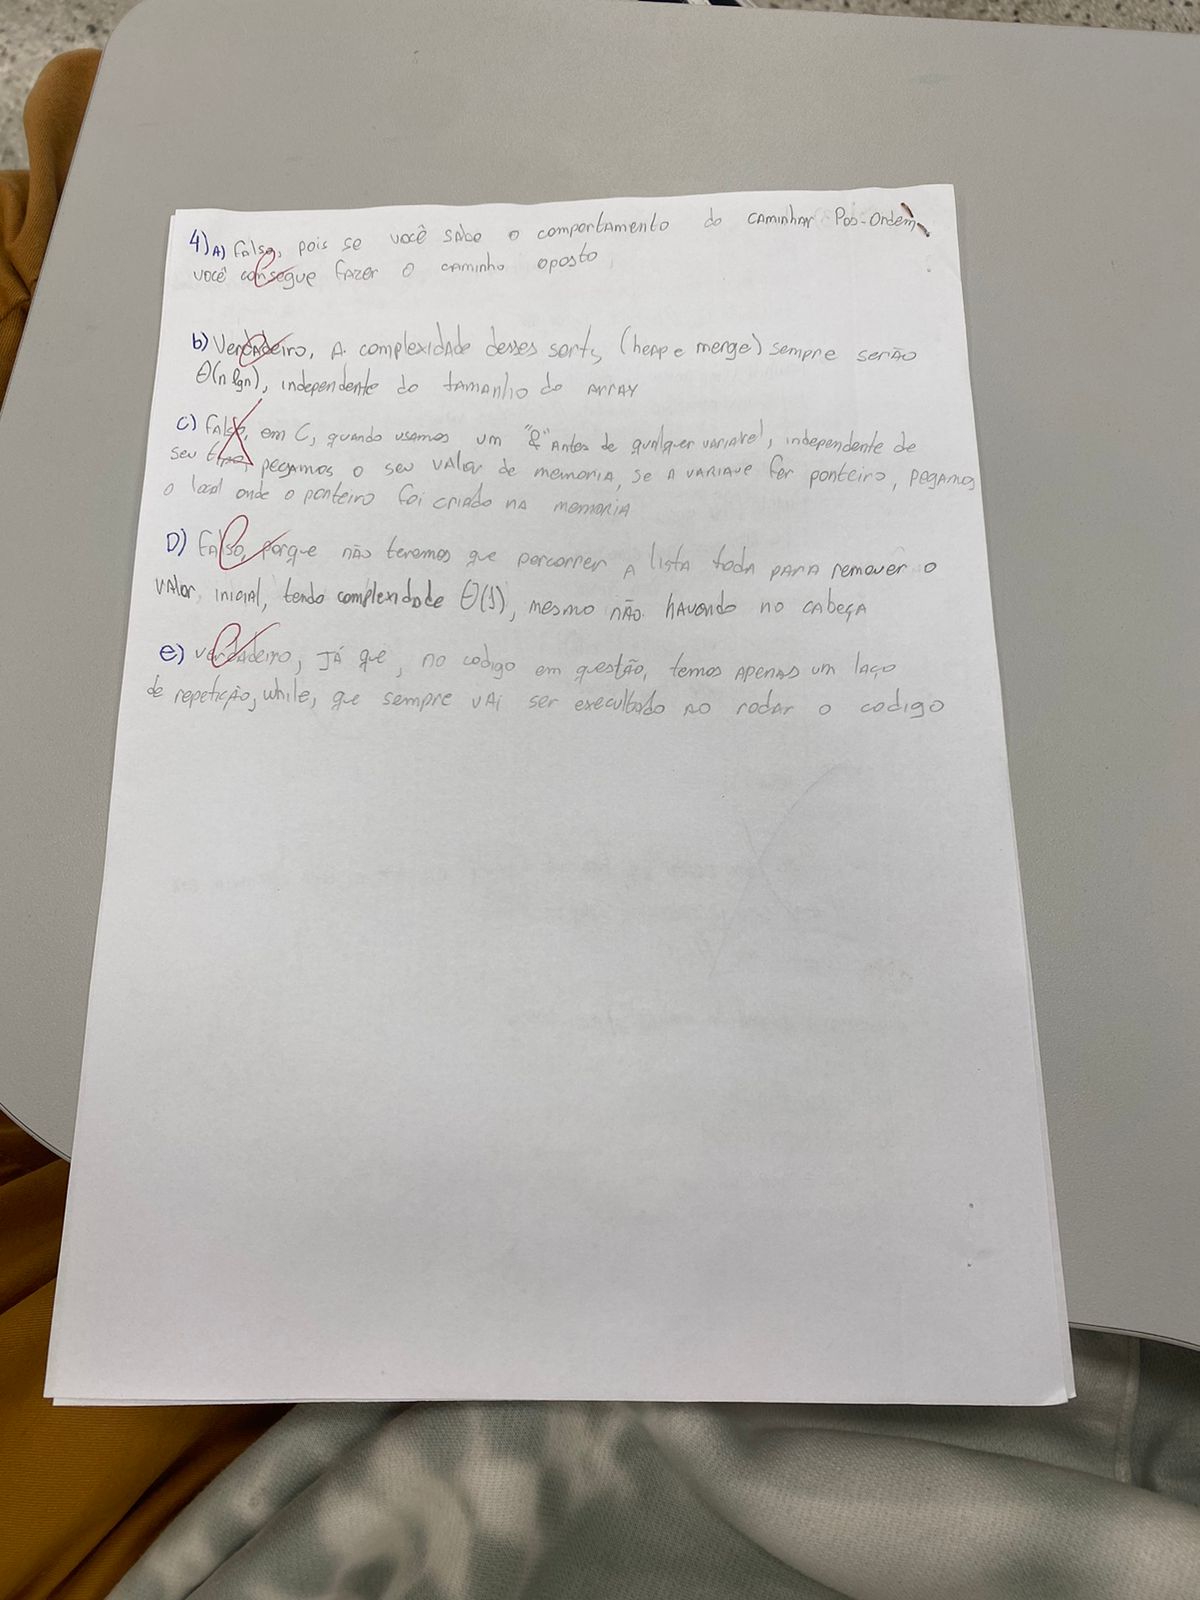 4) A) Falso, pois se você sabe o comportamento do caminhar Pos-Ordem,
você consegue fazer o caminho oposto
b) Verdadeiro, A complexidade desses sorts (heap e merge) sempre serão
Θ(n lgn), independente do tamanho do array
c) Falso, em C, quando usamos um "&" Antes de qualquer variavel, independente de
seu tipo, pegamos o seu valor de memoria, se a variave for ponteiro, pegamos
o local onde o ponteiro foi criado na memoria
D) Falso, porque não teremos que percorrer a lista toda para remover o
valor inicial, tendo complexidade Θ(1), mesmo não havendo no cabeça
e) Verdadeiro, Já que, no codigo em questão, temos apenas um laço
de repetição, while, que sempre vai ser execultado ao rodar o codigo